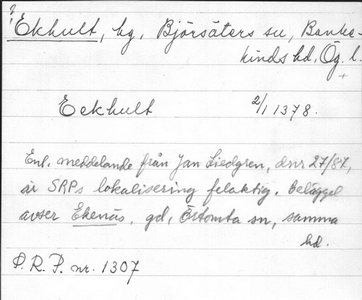 ? Ekhult, hg, Björsäters sn, Banke-
kinds hd, Ög. l.
+
Eekhult 2/1 1378.
Enl. meddelande från Jan Liedgren, dnr 27/87,
är SRPs lokalisering felaktig. Belägget
avser Ekenäs, gd, Östomta sn, samma
hd.
P.R.P. nr. 1307